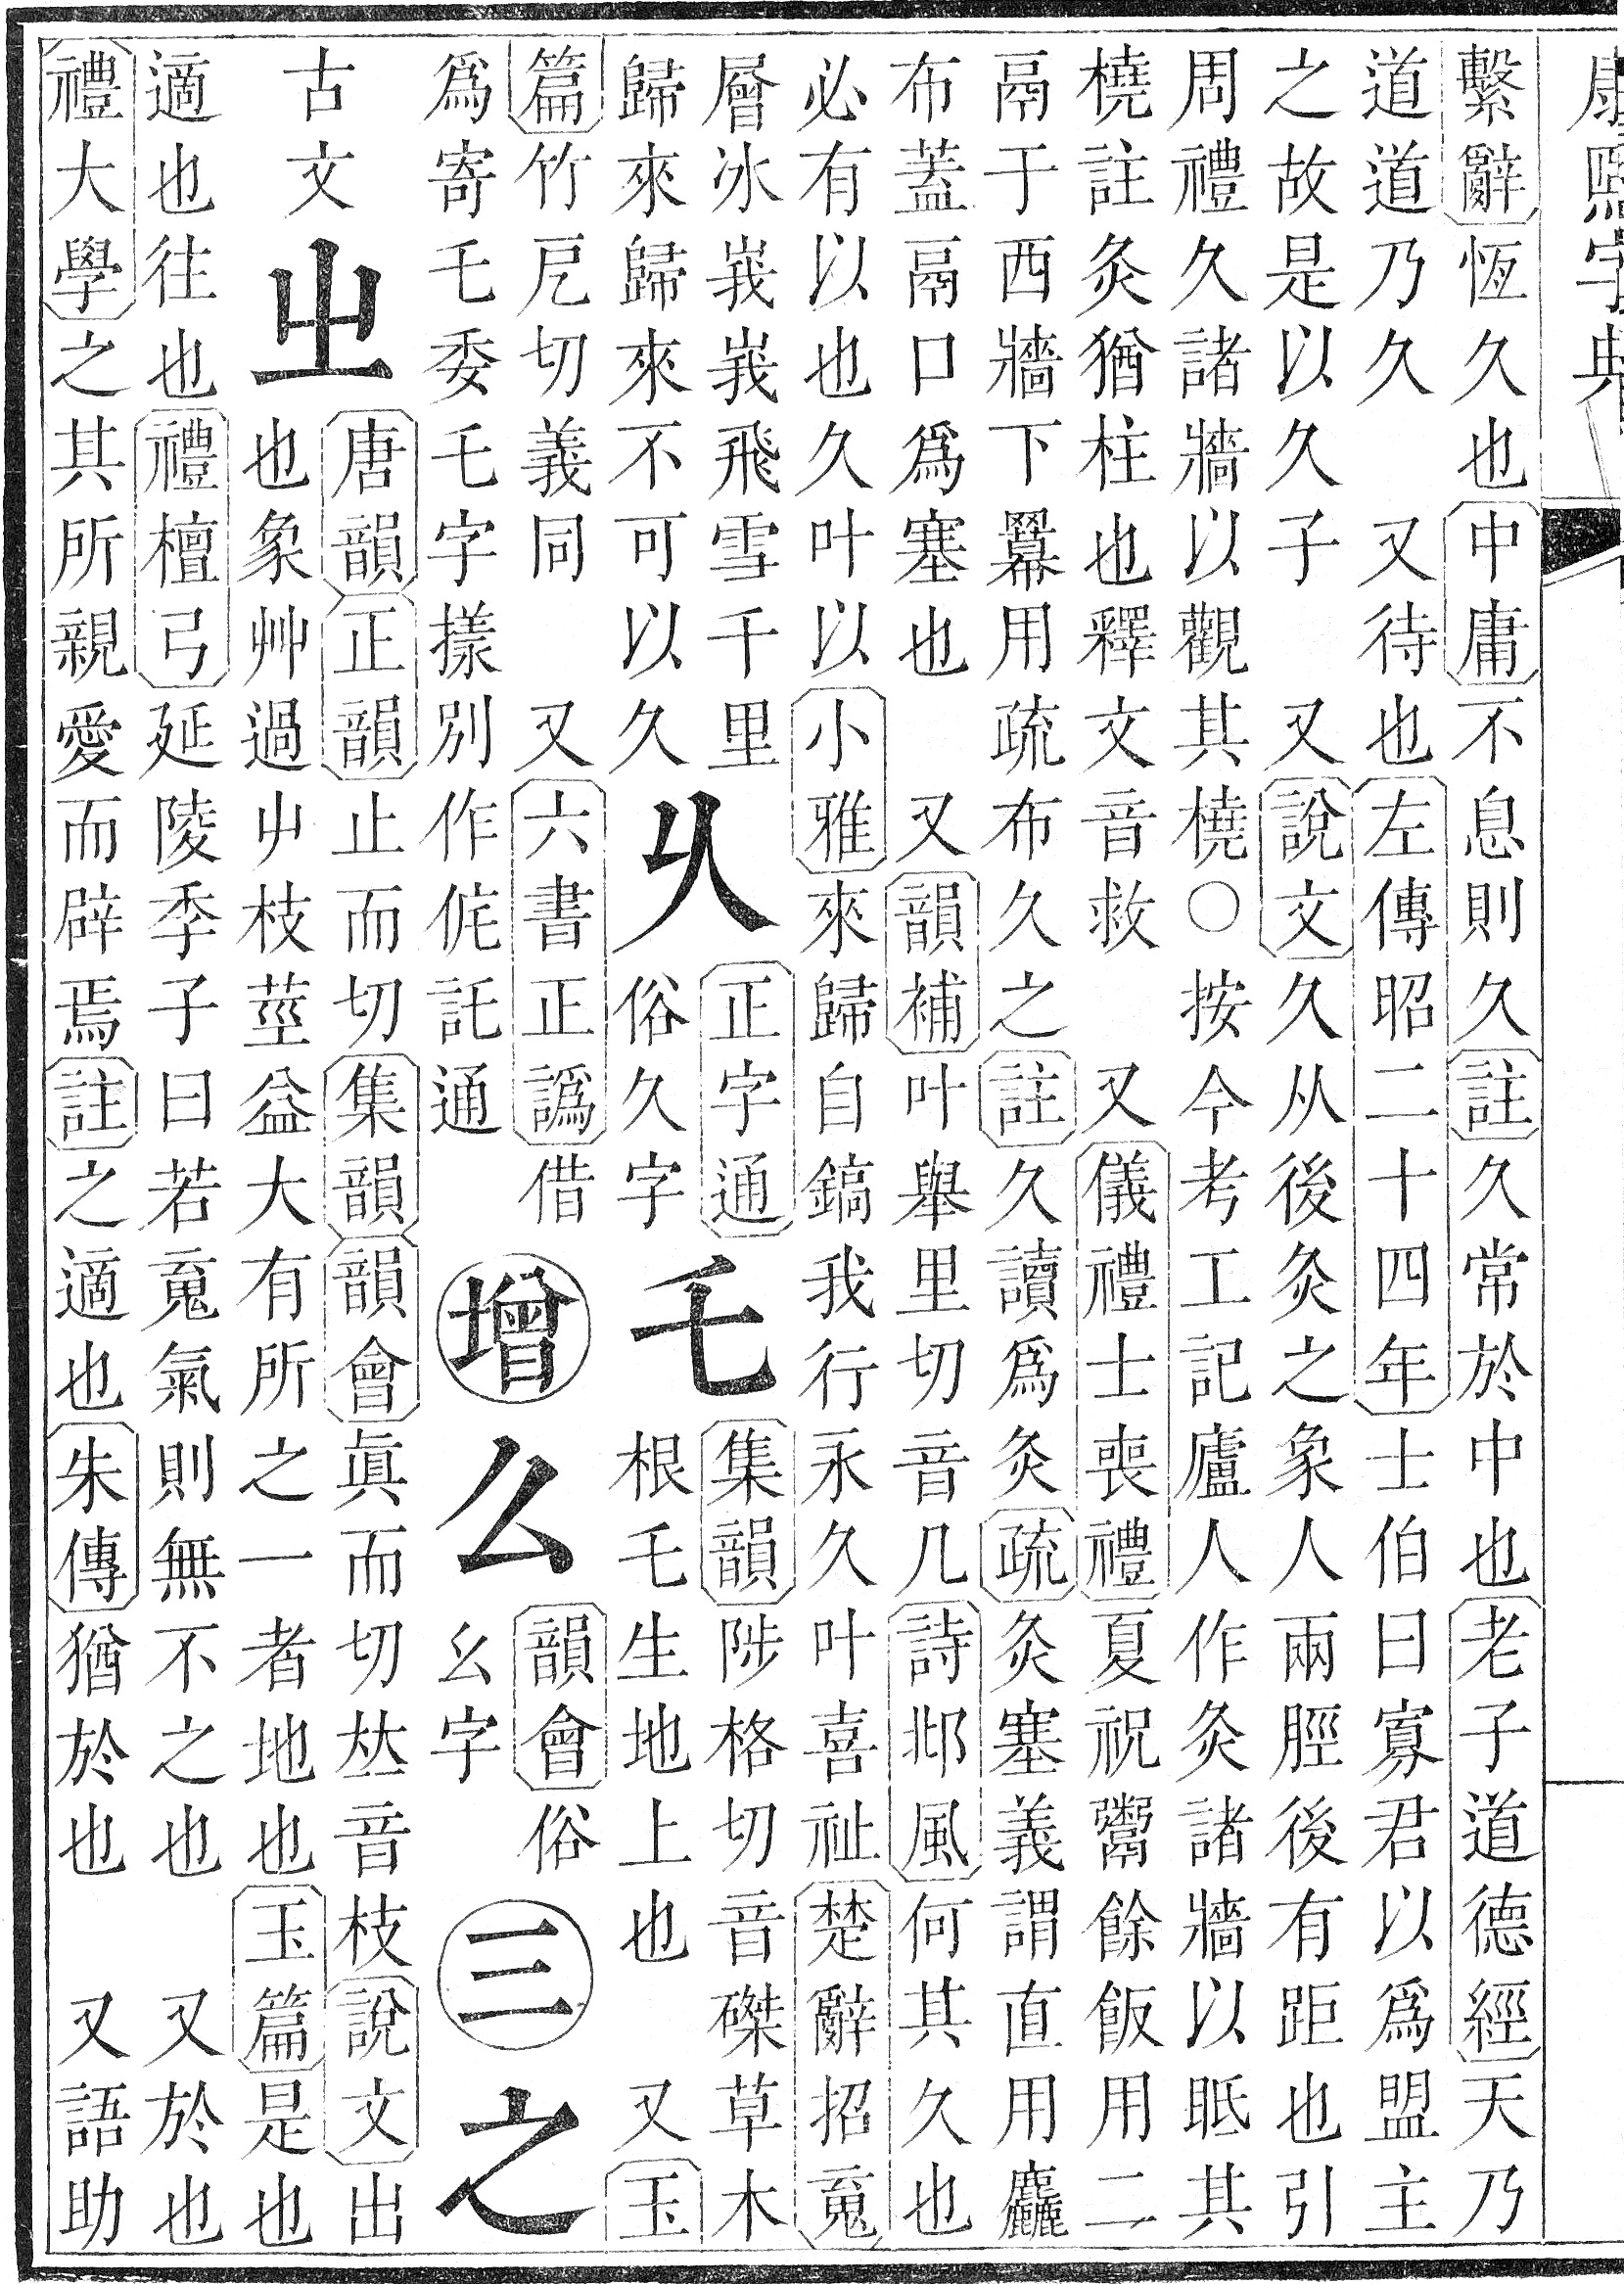 康熙字典
繫辭恆久也　中庸不息則久註久常於中也老子道德經天乃
道道乃久　又待也左傳昭二十四年士伯曰寡君以爲盟主
之故是以久子　又說文久从後灸之象人兩脛後有距也引
周禮久諸牆以觀其橈○按今考工記廬人作灸諸牆以眡其
橈註灸猶柱也釋文音救　又儀禮士喪禮夏祝鬻餘飯用二
鬲于西牆下冪用疏布久之註久讀爲灸疏灸塞義謂直用麤
布蓋鬲口爲塞也　又韻補叶舉里切音几詩邶風何其久也
必有以也久叶以小雅來歸自鎬我行永久叶喜祉楚辭招䰟
層冰峩峩飛雪千里
歸來歸來不可以久
乆
正字通
俗久字
乇
集韻陟格切音磔草木
根乇生地上也　又玉
篇竹戹切義同　又六書正譌借
爲寄乇委乇字樣別作侂託通
增
么
韻會俗
幺字
三
之
古文
㞢
唐韻正韻止而切集韻韻會眞而切𠀤音枝說文出
也象艸過屮枝莖益大有所之一者地也玉篇是也
適也往也禮檀弓延陵季子曰若䰟氣則無不之也　又於也
禮大學之其所親愛而辟焉註之適也朱傳猶於也　又語助